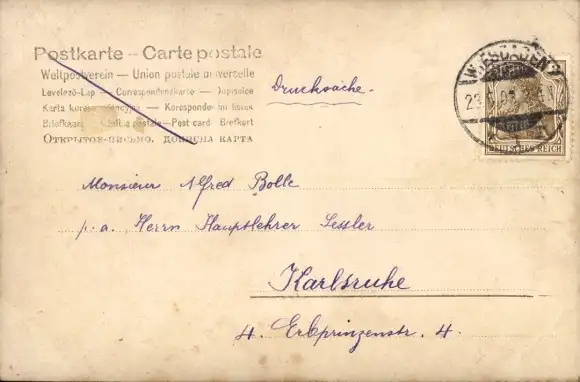 Postkarte – Carte postale
Weltpostverein — Union postale universelle
Levelező-Lap — Correspondenzkarte — Dopisnice
Karta korespondencyjna — Korespondenční lístek
Briefkaart — postale — Post card — Brefkort
Открытое письмо. дописна карта
Drucksache.
WIESBADEN
DEUTSCHES REICH
Monsieur Alfred Bolle
p. a. Herrn Hauptlehrer Sessler
Karlsruhe
4. Erbprinzenstr. 4.